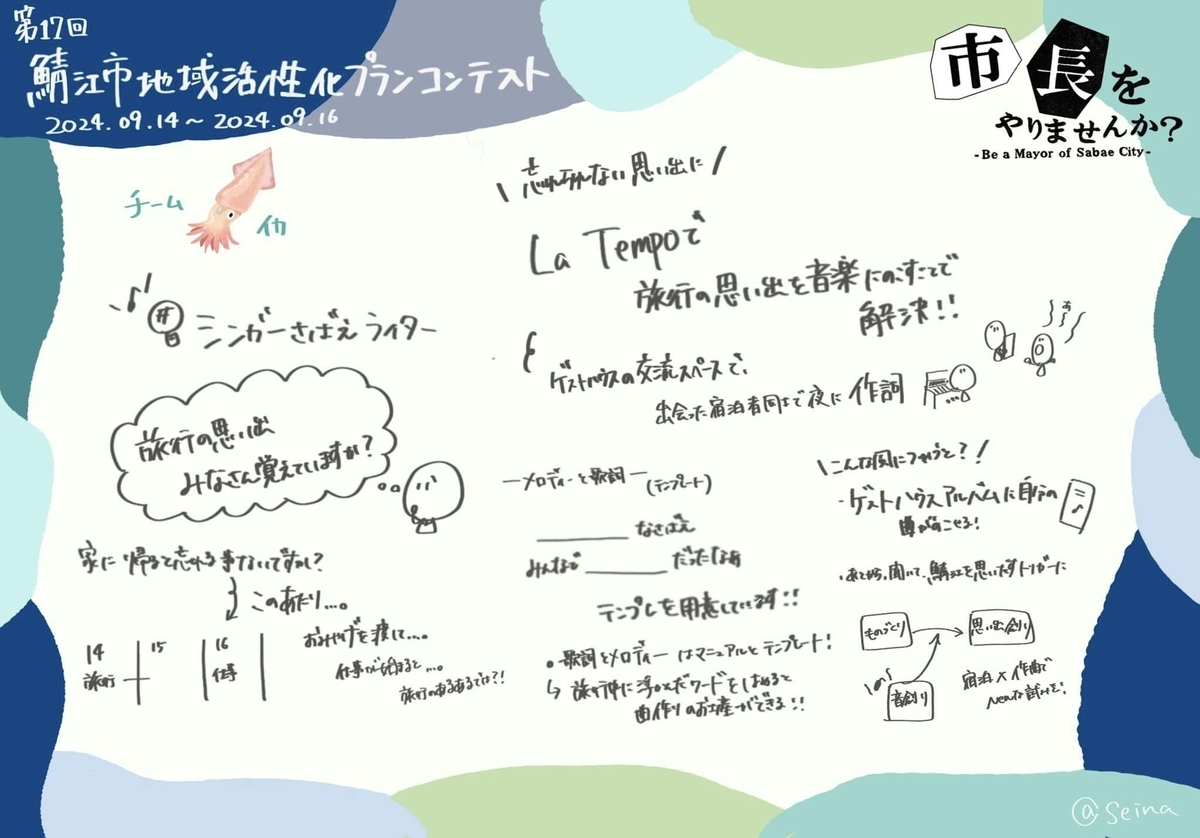 第17回
鯖江市地域活性化プランコンテスト
2024.09.14～2024.09.16
市長を
やりませんか？
-Be a Mayor of Sabae City-
チーム
イカ
シンガーさばえライター
旅行の思い出
みなさん覚えていますか？
家に帰ると忘れる事ないですか？
このあたり…。
14
旅行
15
16
仕事
おみやげを渡して…。
仕事が始まると…。
旅行のあるあるでは?!
\忘れられない思い出に/
La Tempoで
旅行の思い出を音楽にのこすことで
解決!!
ゲストハウスの交流スペースで、
出会った宿泊者同士で夜に作詞
ーメロディーと歌詞ー
(テンプレート)
なさばえ
みんなで だったなぁ
テンプレを用意しています!!
・歌詞とメロディーはマニュアルとテンプレート!
↳旅行中に浮かんだワードをはめると
曲作りのお土産ができる!!
\こんな風につかうと?!/
-ゲストハウスアルバムに自分の
曲がのこせる!
・あとから聞いて、鯖江を思い出すトリガーに
ものづくり
思い出創り
音創り
宿泊×作曲で
Newな試みを!
@Seina